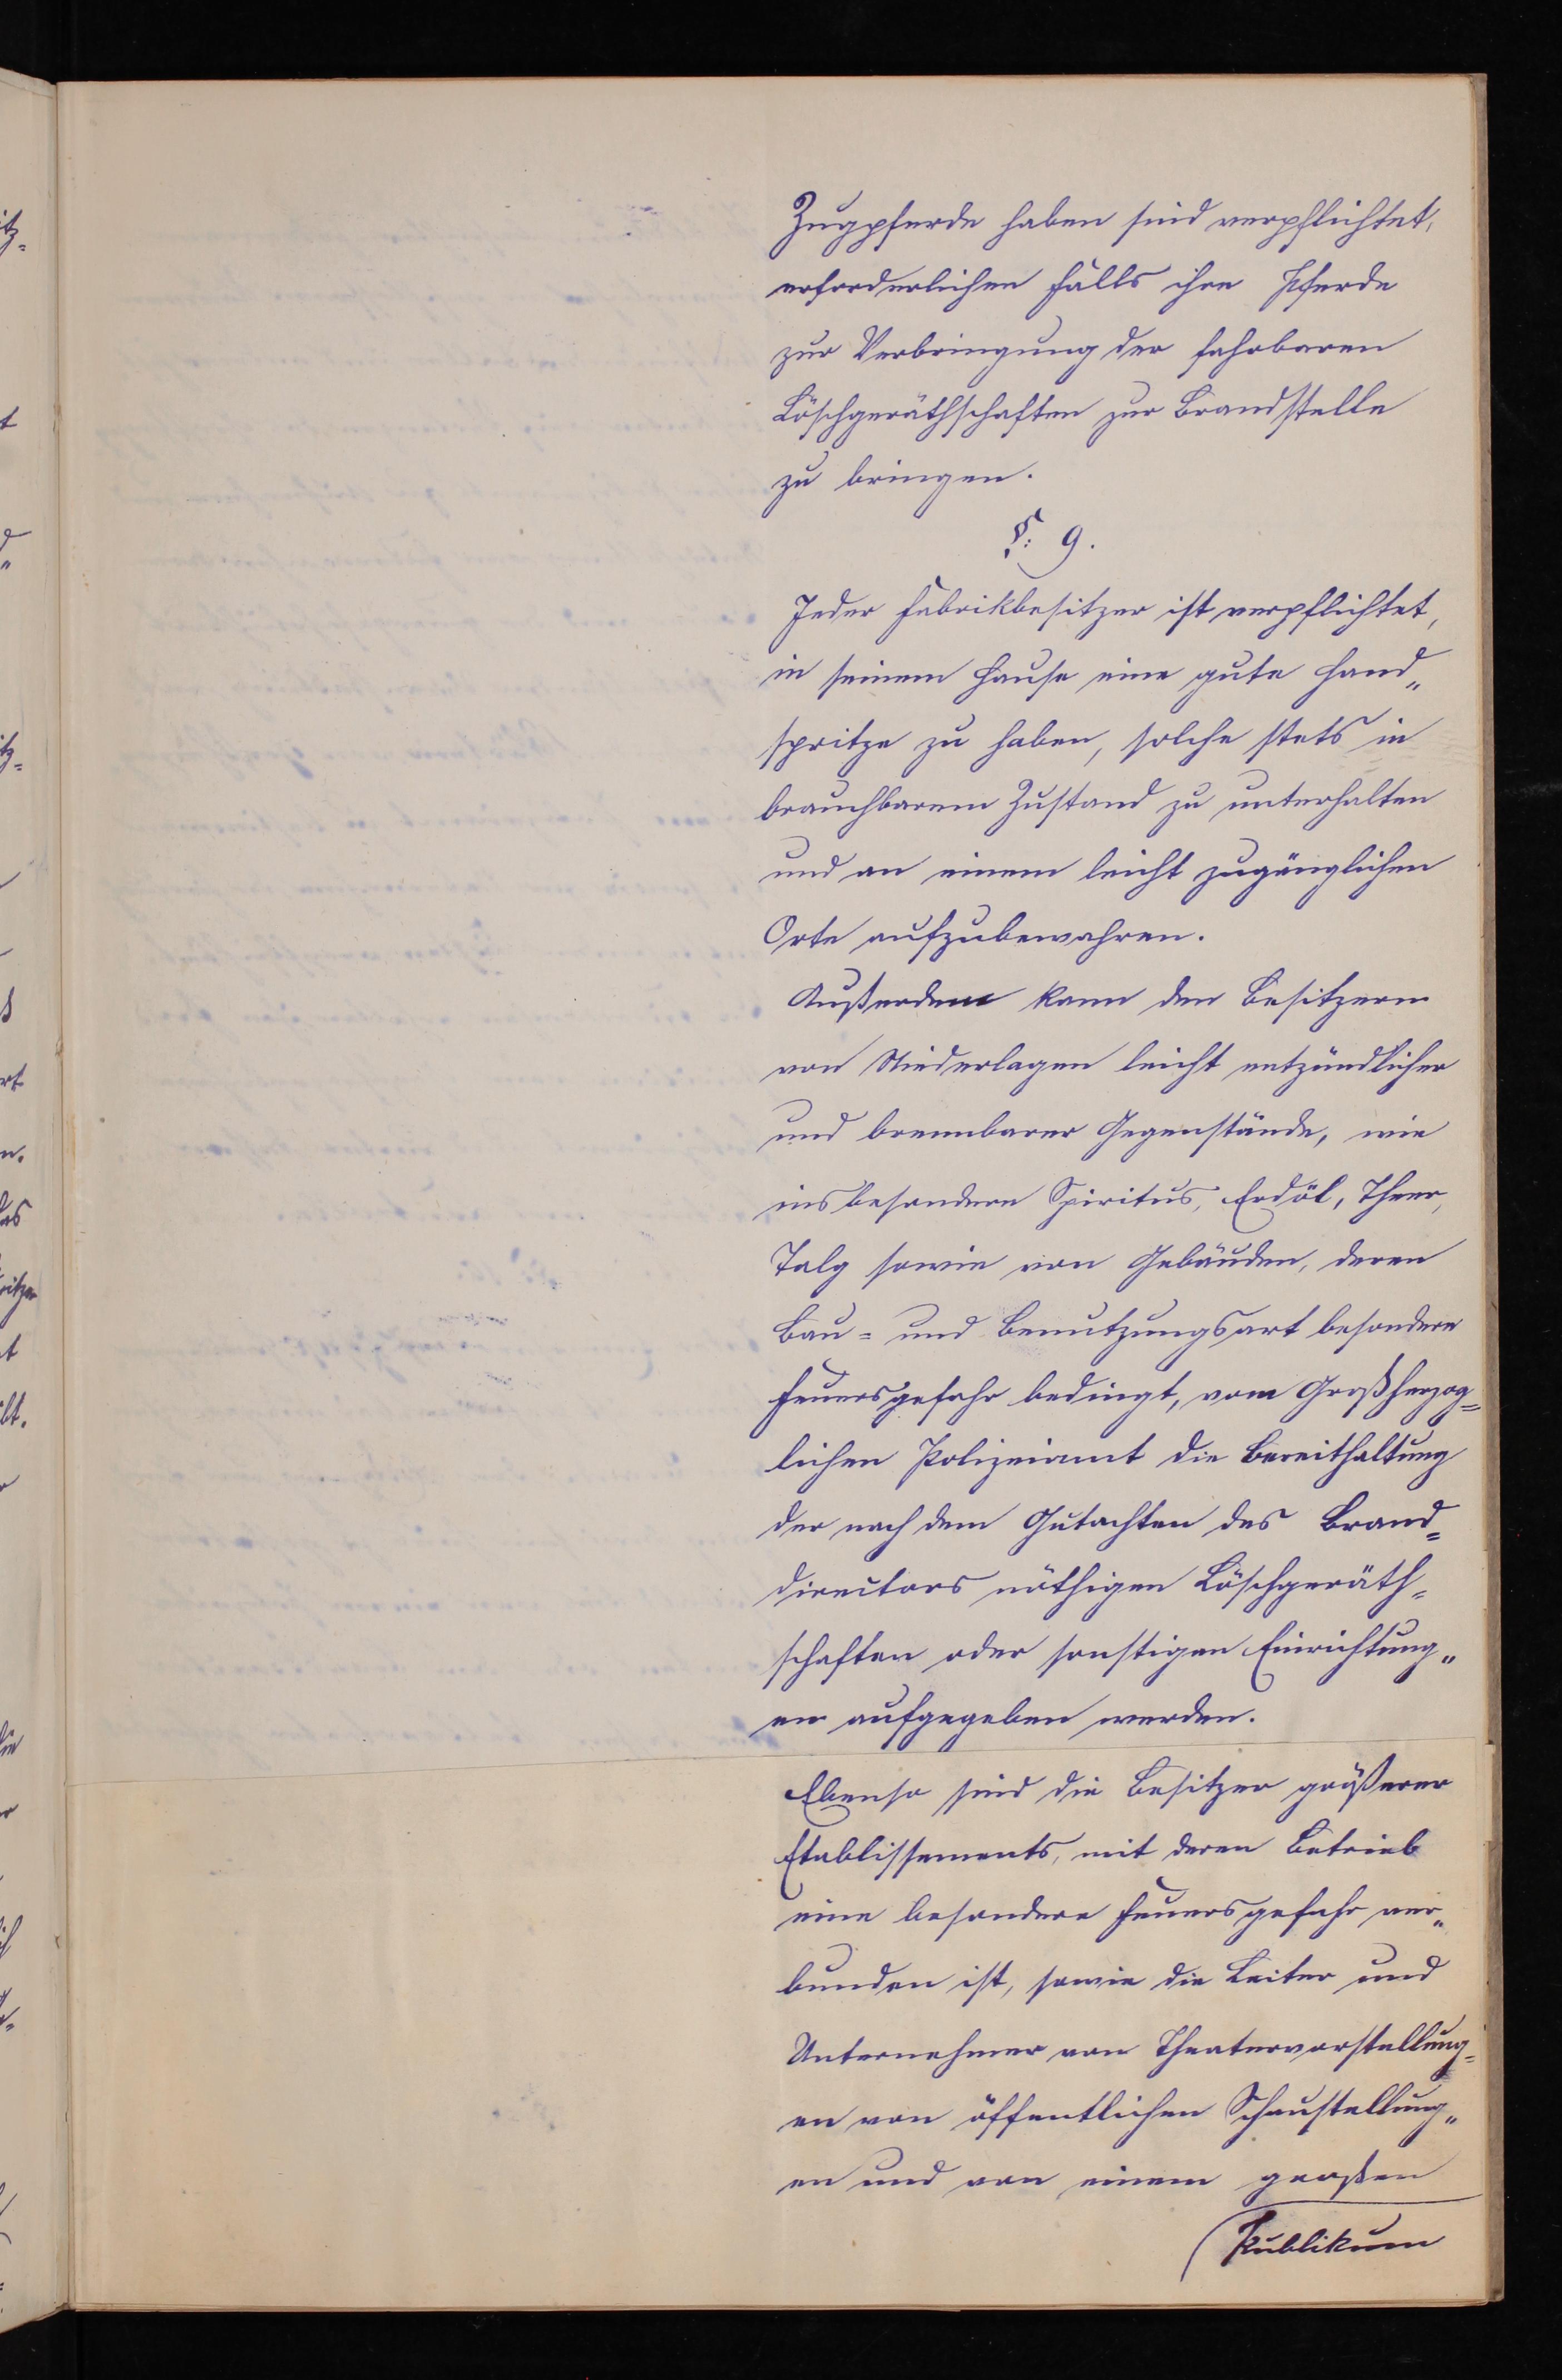 Zugpferde haben sind verpflichtet,
erforderlichen Falls ihre Pferde
zur Verbringung der fahrbaren
Löschgeräthschaften zur Brandstelle
zu bringen.
§. 9.
Jeder Fabrikbesitzer ist verpflichtet,
in seinem Hause eine gute Hand„
spritze zu haben, solche stets in
brauchbarem Zustand zu unterhalten
und an einem leicht zugänglichen
Orte aufzubewahren.
Außerdem kann den Besitzern
von Niederlagen leicht entzündlicher
und brennbarer Gegenstände, wie
insbesondere Spiritus, Erdöl, Theer,
Talg sowie von Gebäuden, deren
Bau= und Benutzungsart besondere
Feuersgefahr bedingt, vom Großherzog=
lichen Polizeiamt die Bereithaltung
der nach dem Gutachten des Brand=
directors nöthigen Löschgeräth=
schaften oder sonstigen Einrichtung„
en aufgegeben werden.
Ebenso sind die Besitzer größerer
Etablissements, mit deren Betrieb
eine besondere Feuersgefahr ver„
bunden ist, sowie die Leiter und
Unternehmer von Theatervorstellung=
en von öffentlichen Schaustellung„
en und von einem großen
Publikum